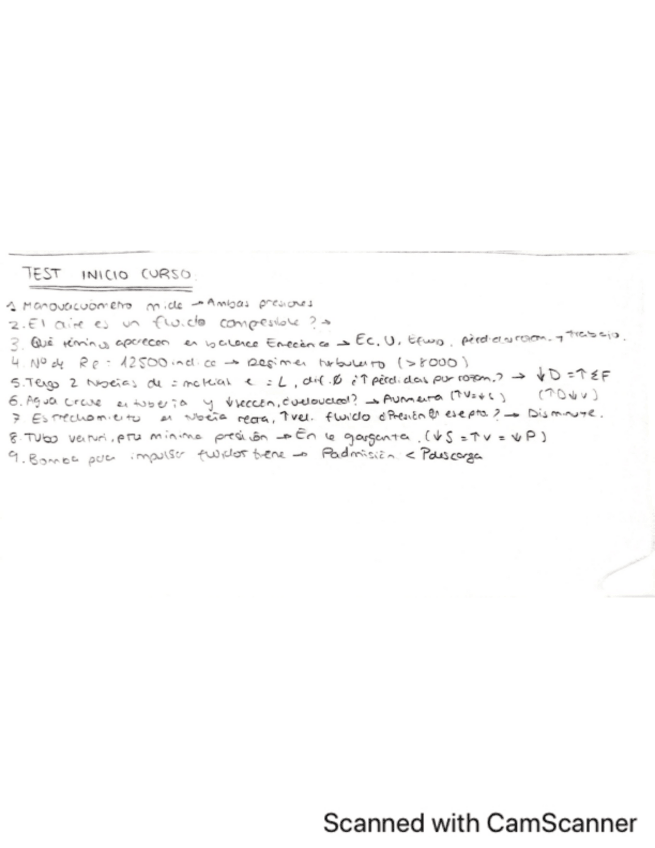 TEST INICIO CURSO.
1 Manovacuometro mide → Ambas presiones
2. El aire es un fluido compesible? →
3. Qué términos aparecen en balance → Ec, U, trabajo.
4. Nº de Re = 12500 indica → Regimen turbulento (>8000)
5. Tengo 2 tuberias de = material e = L, dif. Ø ¿↑ pérdidas por rozam.? → ↓D = ↑ΣF
6. Agua circula en tuberia y ↓sección, ¿velocidad? → Aumenta (↑D↓v)
7 Estrechamiento en tubería recta, ↑vel. fluido ¿Presión en ese pto? → Disminute.
8. Tubo venturi, pto mínima presión → En la garganta. (↓S = ↑v = ↓P)
9. Bomba para impulsar fluidos tiene → Padmisión < Pdescarga
Scanned with CamScanner